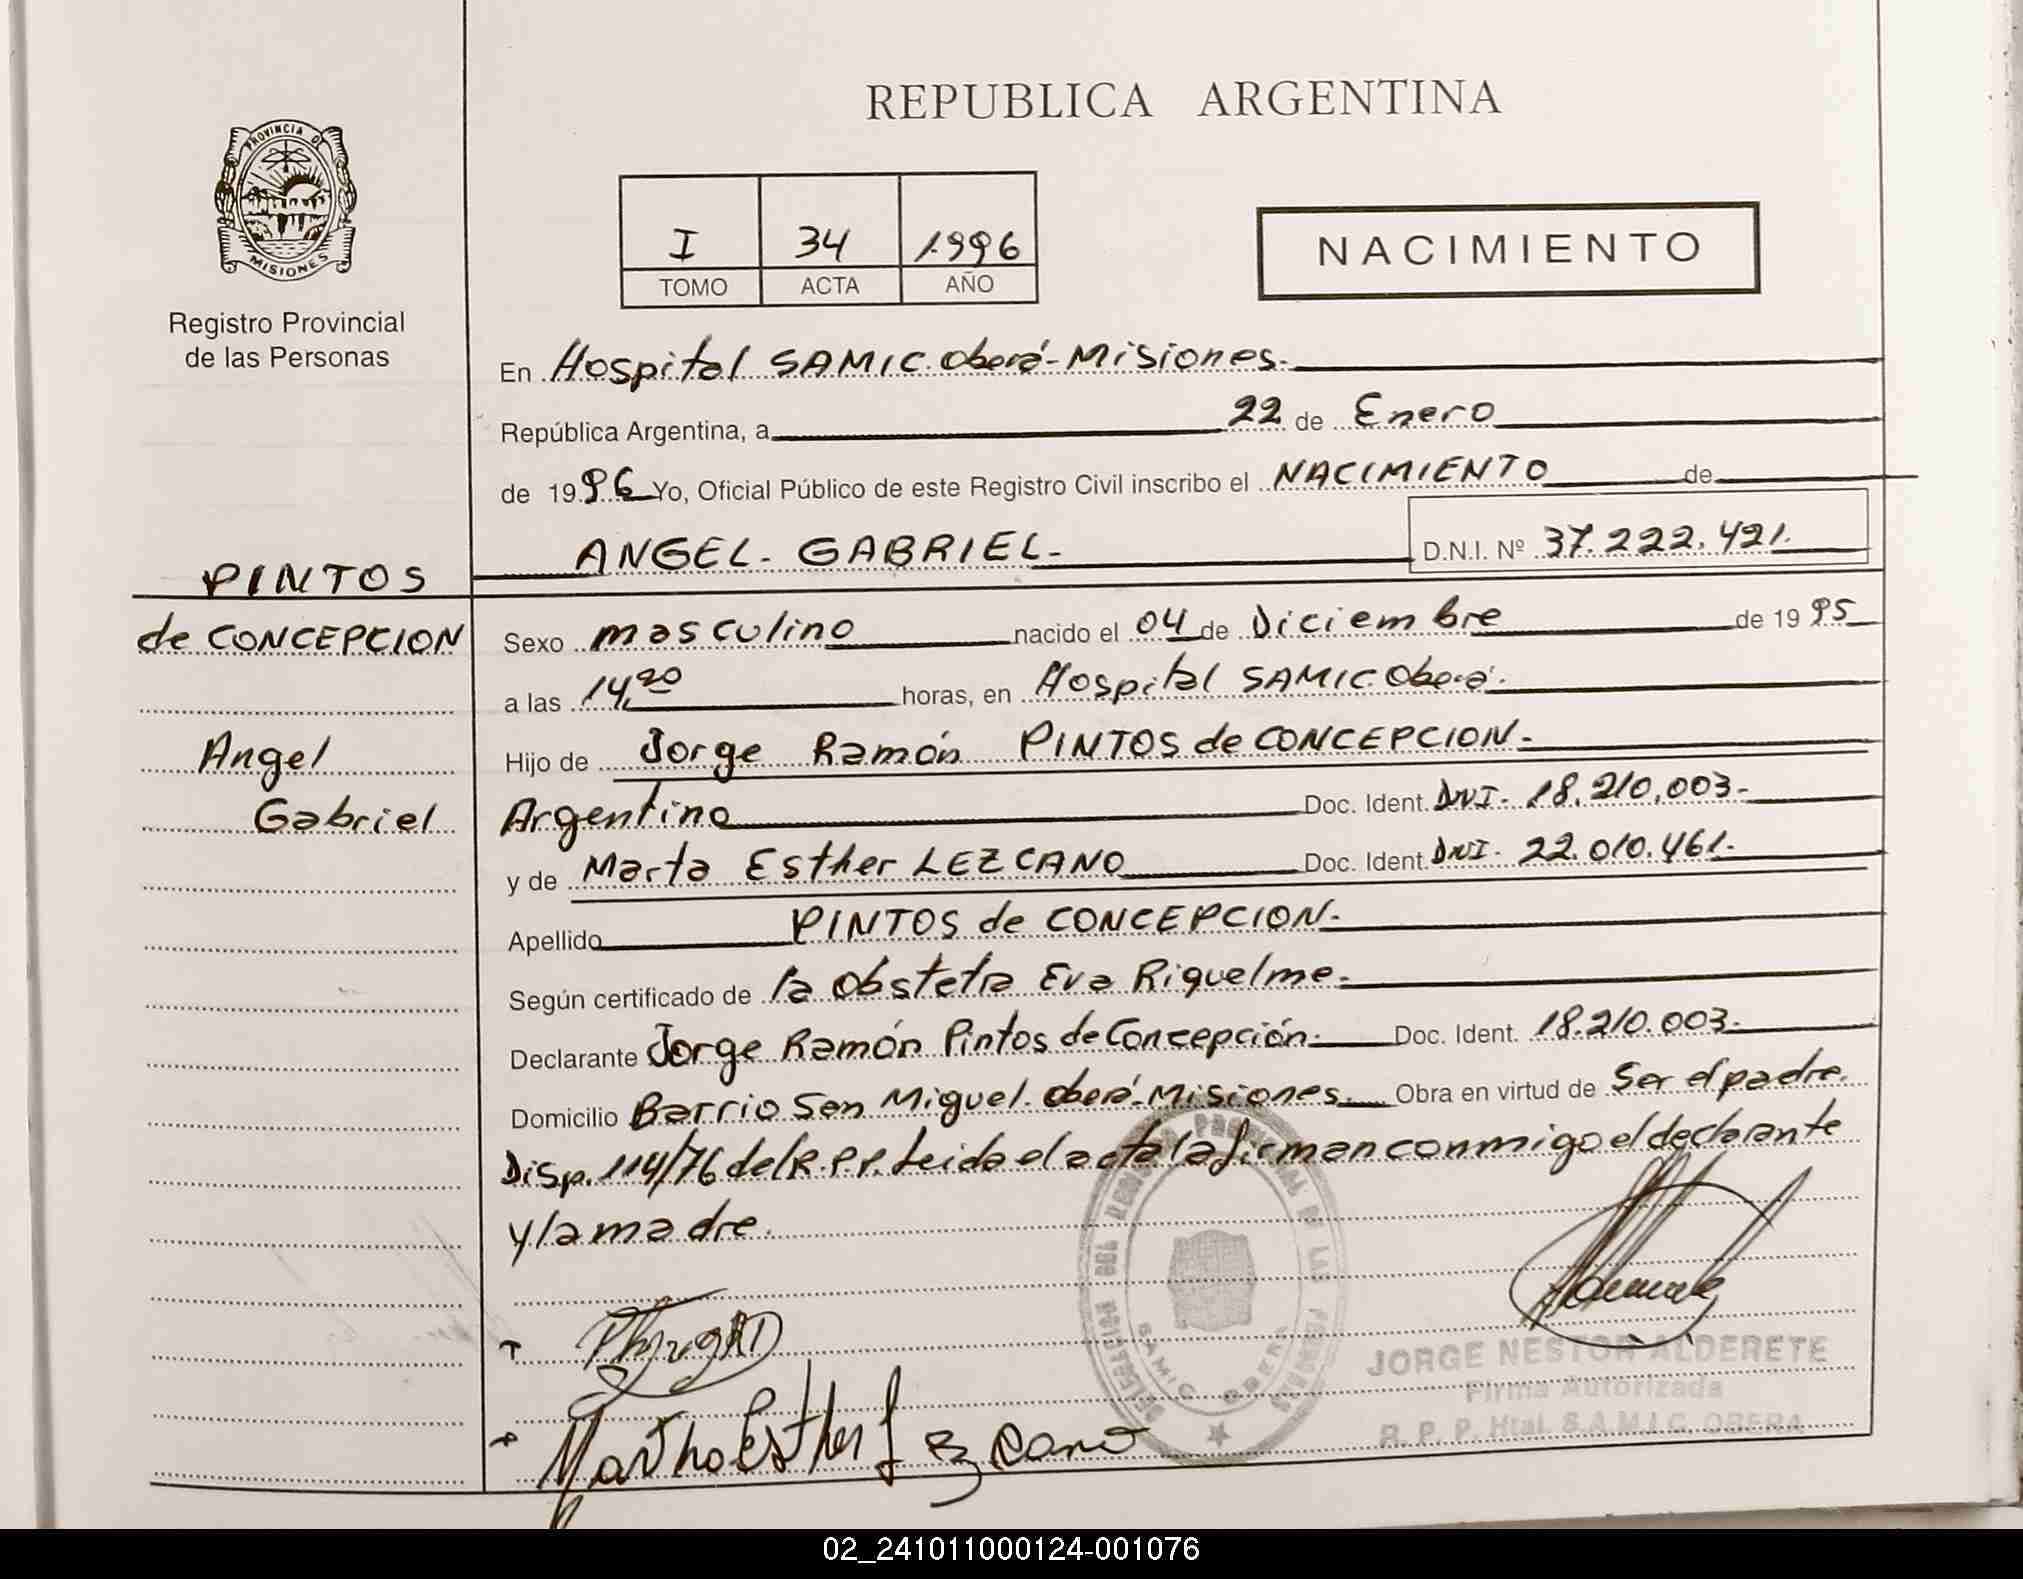 REPUBLICA ARGENTINA
PROVINCIA DE
MISIONES
Registro Provincial
de las Personas
I 34 1996
TOMO ACTA AÑO
NACIMIENTO
En Hospital SAMIC. Oberá-Misiones.
República Argentina, a 22 de Enero
de 1996 Yo, Oficial Público de este Registro Civil inscribo el NACIMIENTO de
ANGEL- GABRIEL- D.N.I. Nº 37.222.421.
PINTOS
de CONCEPCION
Angel
Gabriel
Sexo masculino nacido el 04 de Diciembre de 1995
a las 14,20 horas, en Hospital SAMIC Oberá.
Hijo de Jorge Ramón PINTOS de CONCEPCION-
Argentino Doc. Ident. DNI- 18.210.003-
y de Marta Esther LEZCANO Doc. Ident. DNI- 22.010.461-
Apellido PINTOS de CONCEPCION-
Según certificado de la obstetra Eva Riquelme-
Declarante Jorge Ramón Pintos de Concepción- Doc. Ident. 18.210.003-
Domicilio Barrio San Miguel. Oberá-Misiones. Obra en virtud de Ser el padre.
Disp. 114/76 del R.P.P. Leida el acta la firman conmigo el declarante
y la madre.
Martha Esther Lezcano
PROVINCIAL DE LAS PERSONAS
SAMIC OBERA
JORGE NESTOR ALDERETE
Firma Autorizada
R. P. P. Htal. S.A.M.I.C. OBERA
02_241011000124-001076